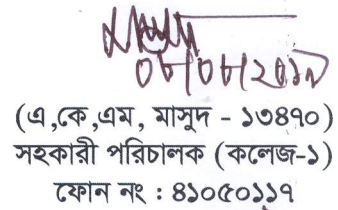 ০৮/০৮/২০১৯
(এ,কে,এম, মাসুদ - ১৩৪৭০)
সহকারী পরিচালক (কলেজ-১)
ফোন নং : ৪১০৫০১১৭